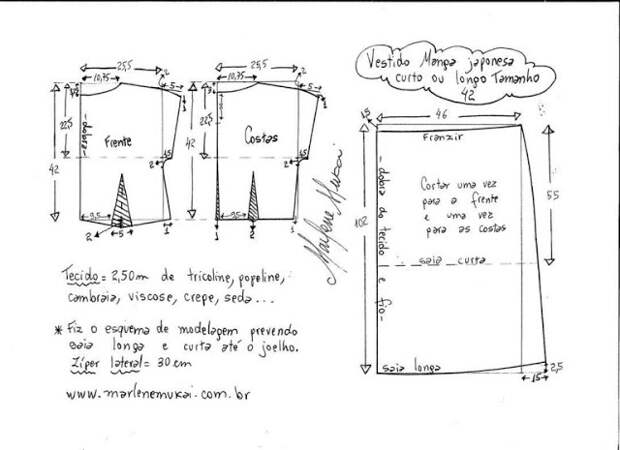 Vestido Manga japonesa
curto ou longo Tamanho
42
25,5
2
10,75
5
1
22,5
42
-dobra-
Frente
1,5
2
9,5
2
5
1
25,5
2
10,75
5
1
22,5
42
Costas
1,5
2
9,5
1
2
1
Marlene Mukai
1,5
46
Franzir
102
-dobra do tecido e fio-
Cortar uma vez
para a frente
e uma vez
para as costas
55
saia curta
saia longa
2,5
15
Tecido = 2,50m de tricoline, popeline,
cambraia, viscose, crepe, seda...
* Fiz o esquema de modelagem prevendo
saia longa e curta até o joelho.
Zíper lateral = 30 cm
www.marlenemukai.com.br